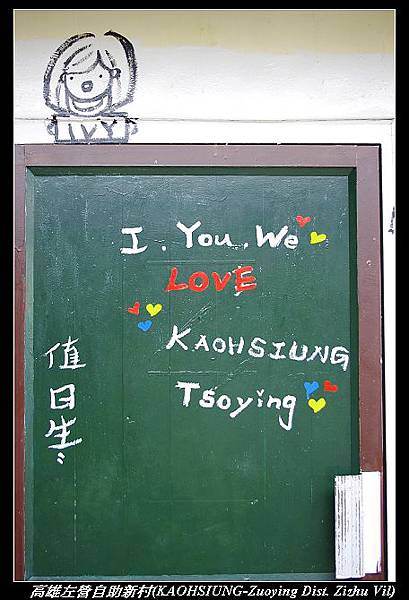 IVY
I. You. We
LOVE
KAOHSIUNG
Tsoying
值日生：
高雄左營自助新村(KAOHSIUNG-Zuoying Dist. Zizhu Vil)